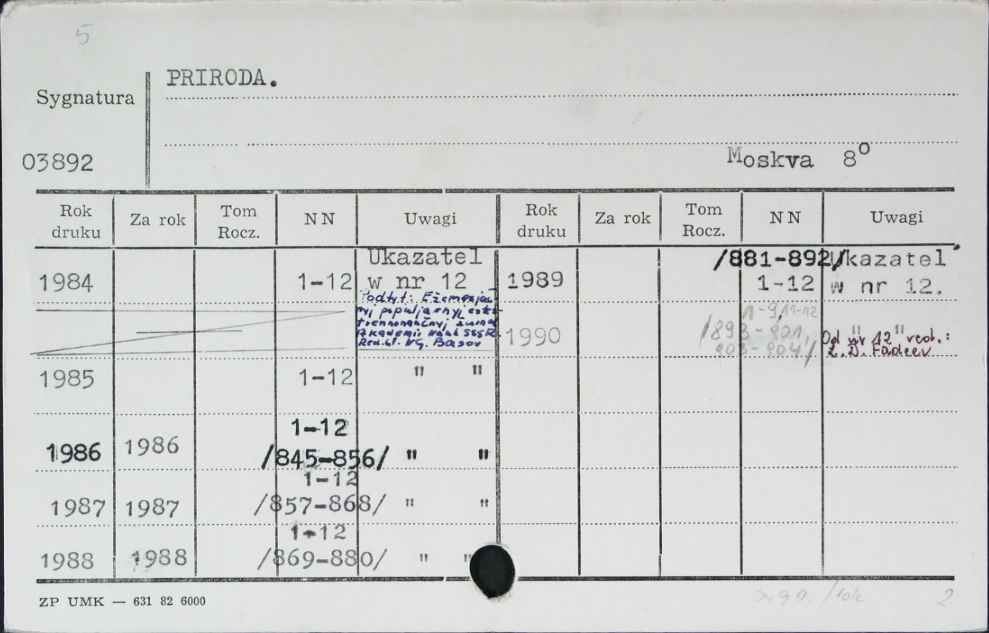 5
PRIRODA.
Sygnatura
03892
Moskva 8º
Rok druku Za rok Tom Rocz. NN Uwagi Rok druku Za rok Tom Rocz. NN Uwagi
1984 1-12 Ukazatel w nr 12
Podtyt: Eżemesjac-
nyj populjarnyj
Akademii Nauk SSSR.
Red. Gł. NG. Basov
1985 1-12 " "
1986 1986 1-12 /845-856/ " "
1987 1987 1-12 /857-868/ " "
1988 1988 1-12 /869-880/ " "
1989 /881-892/ 1-12 Ukazatel w nr 12.
1990 1-9,11-12 /893-901, 903-904/ " "
Od nr 12 red.:
L. D. Faddeev
ZP UMK — 631 82 6000
2